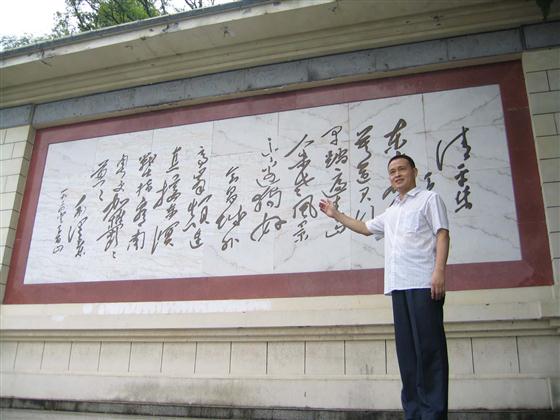 清平乐
东
莫道君行
早踏遍青山
人未老风景
这边独好
会昌城外
高峰颠连
直接东溟
战士指看南
粤更加郁郁
葱葱
毛泽东